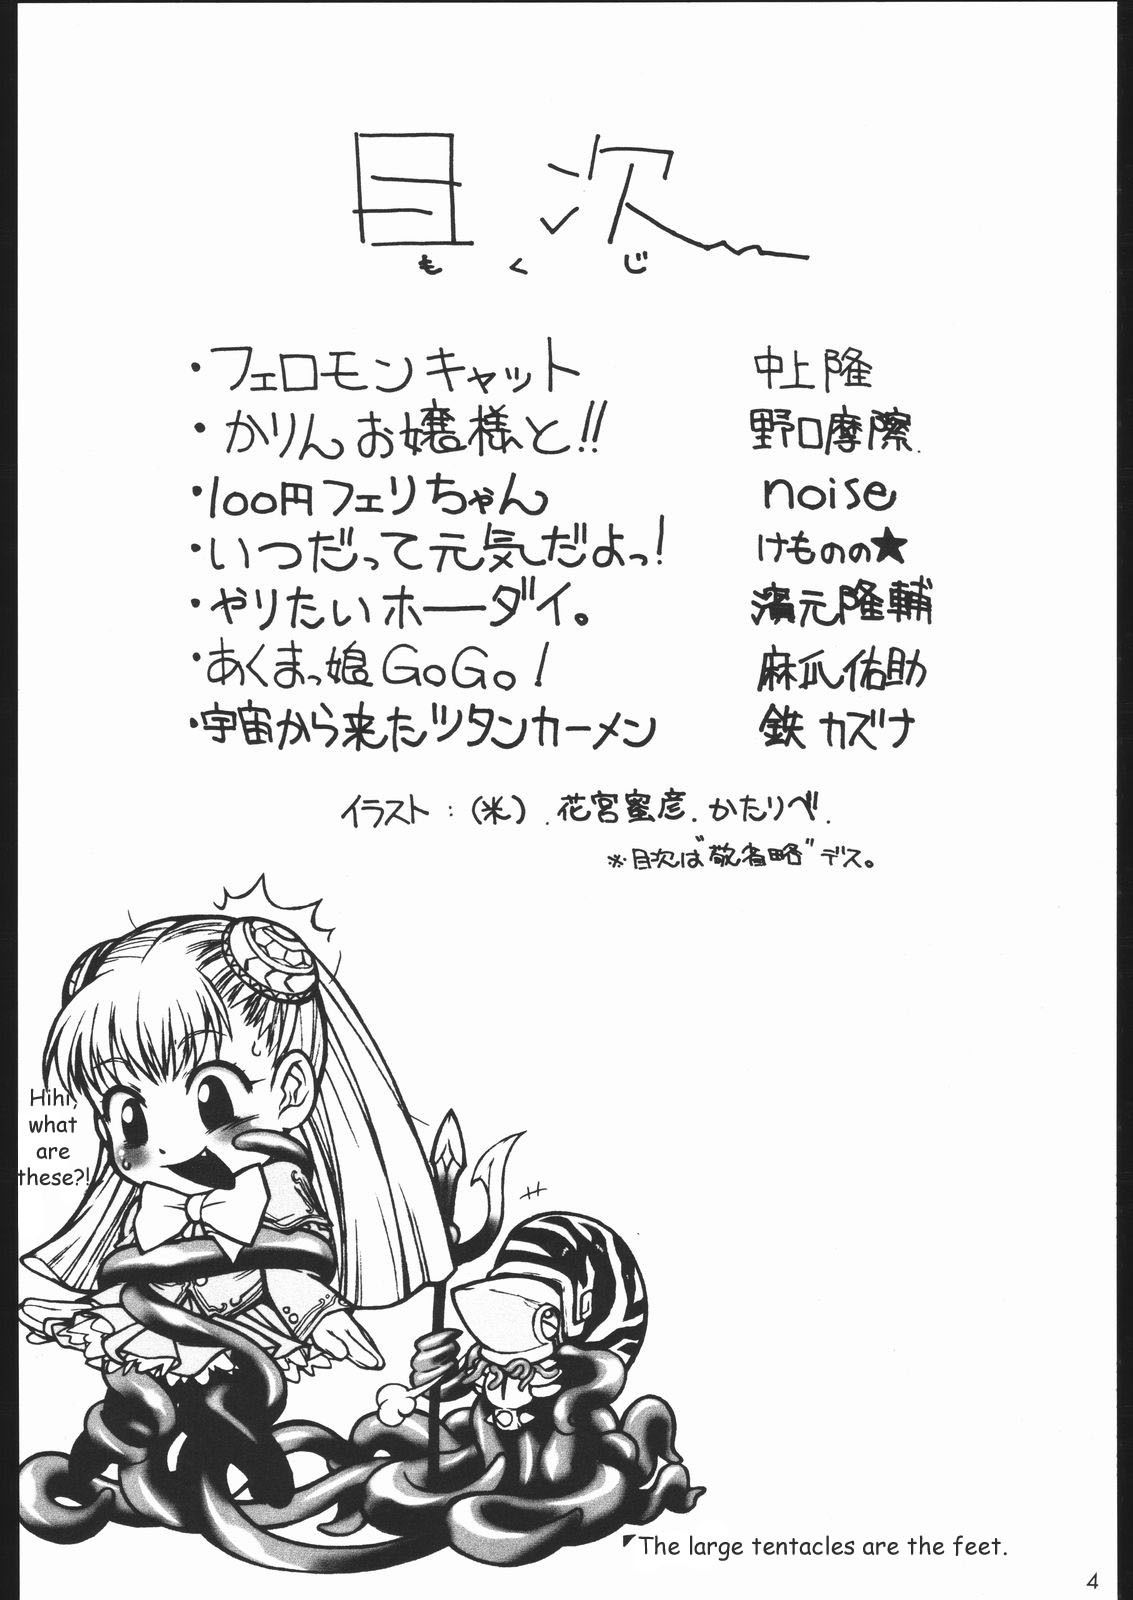 目次
もくじ
・フェロモンキャット 中上隆
・かりんお嬢様と!! 野口摩擦.
・100円フェリちゃん noise
・いつだって元気だよっ! けものの★
・やりたいホーダイ。 濱元隆輔
・あくまっ娘GoGo! 麻爪佑助
・宇宙から来たツタンカーメン 鉄カズナ
イラスト:(米).花宮蜜彦.かたりべ.
※目次は"敬省略"デス。
Hihi,
what
are
these?!
The large tentacles are the feet.
4